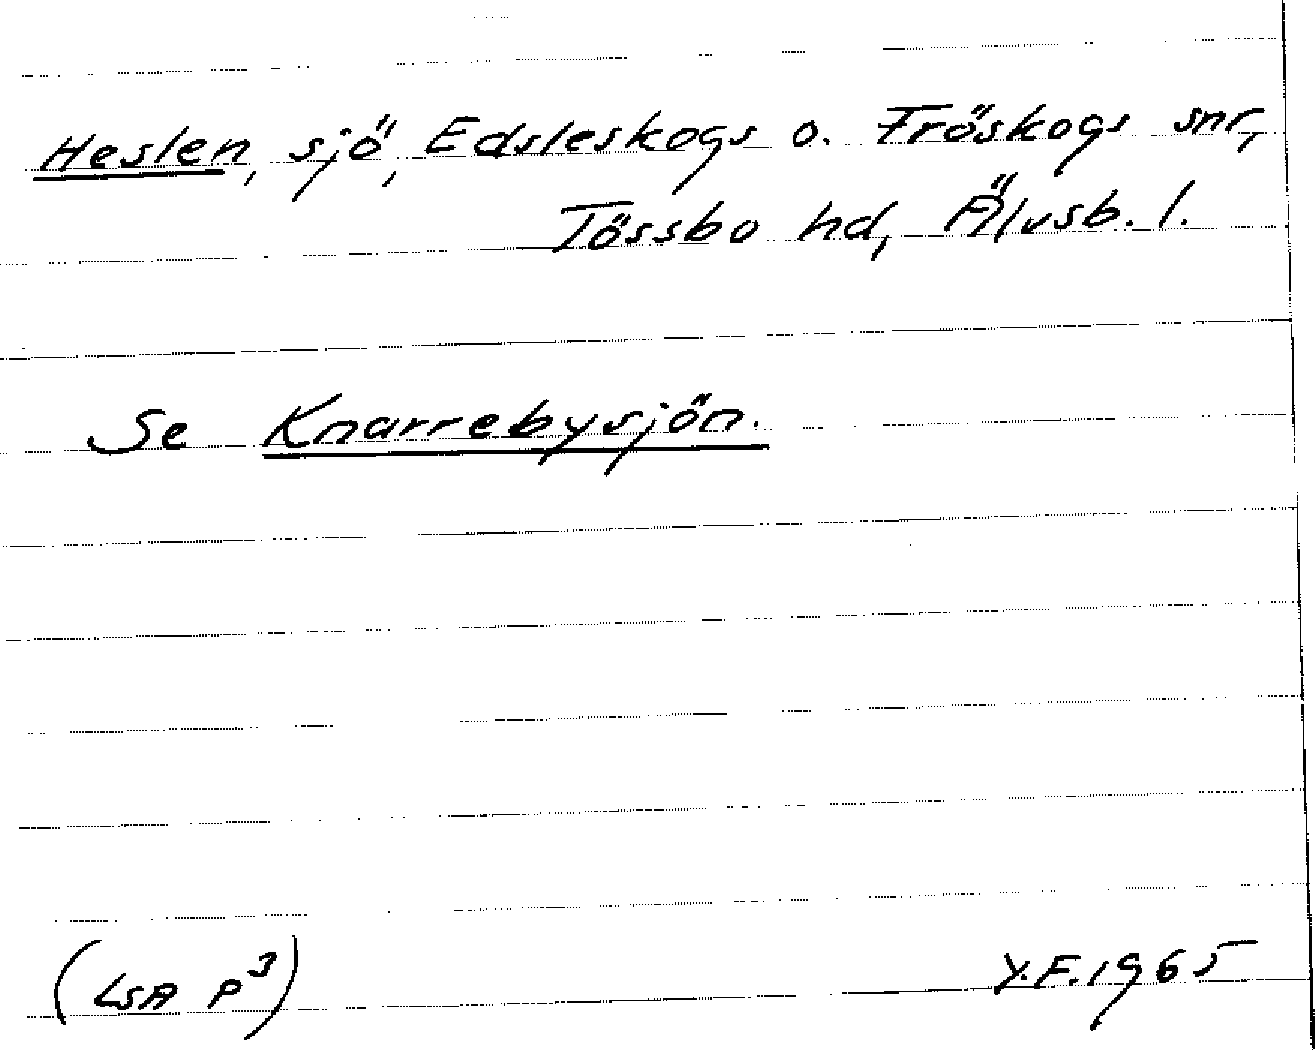 Heslen, sjö, Edsleskogs o. Fröskogs snr,
Tössbo hd, Älvsb. l.
Se Knarrebysjön.
(LSA P³)
Y.F. 1965